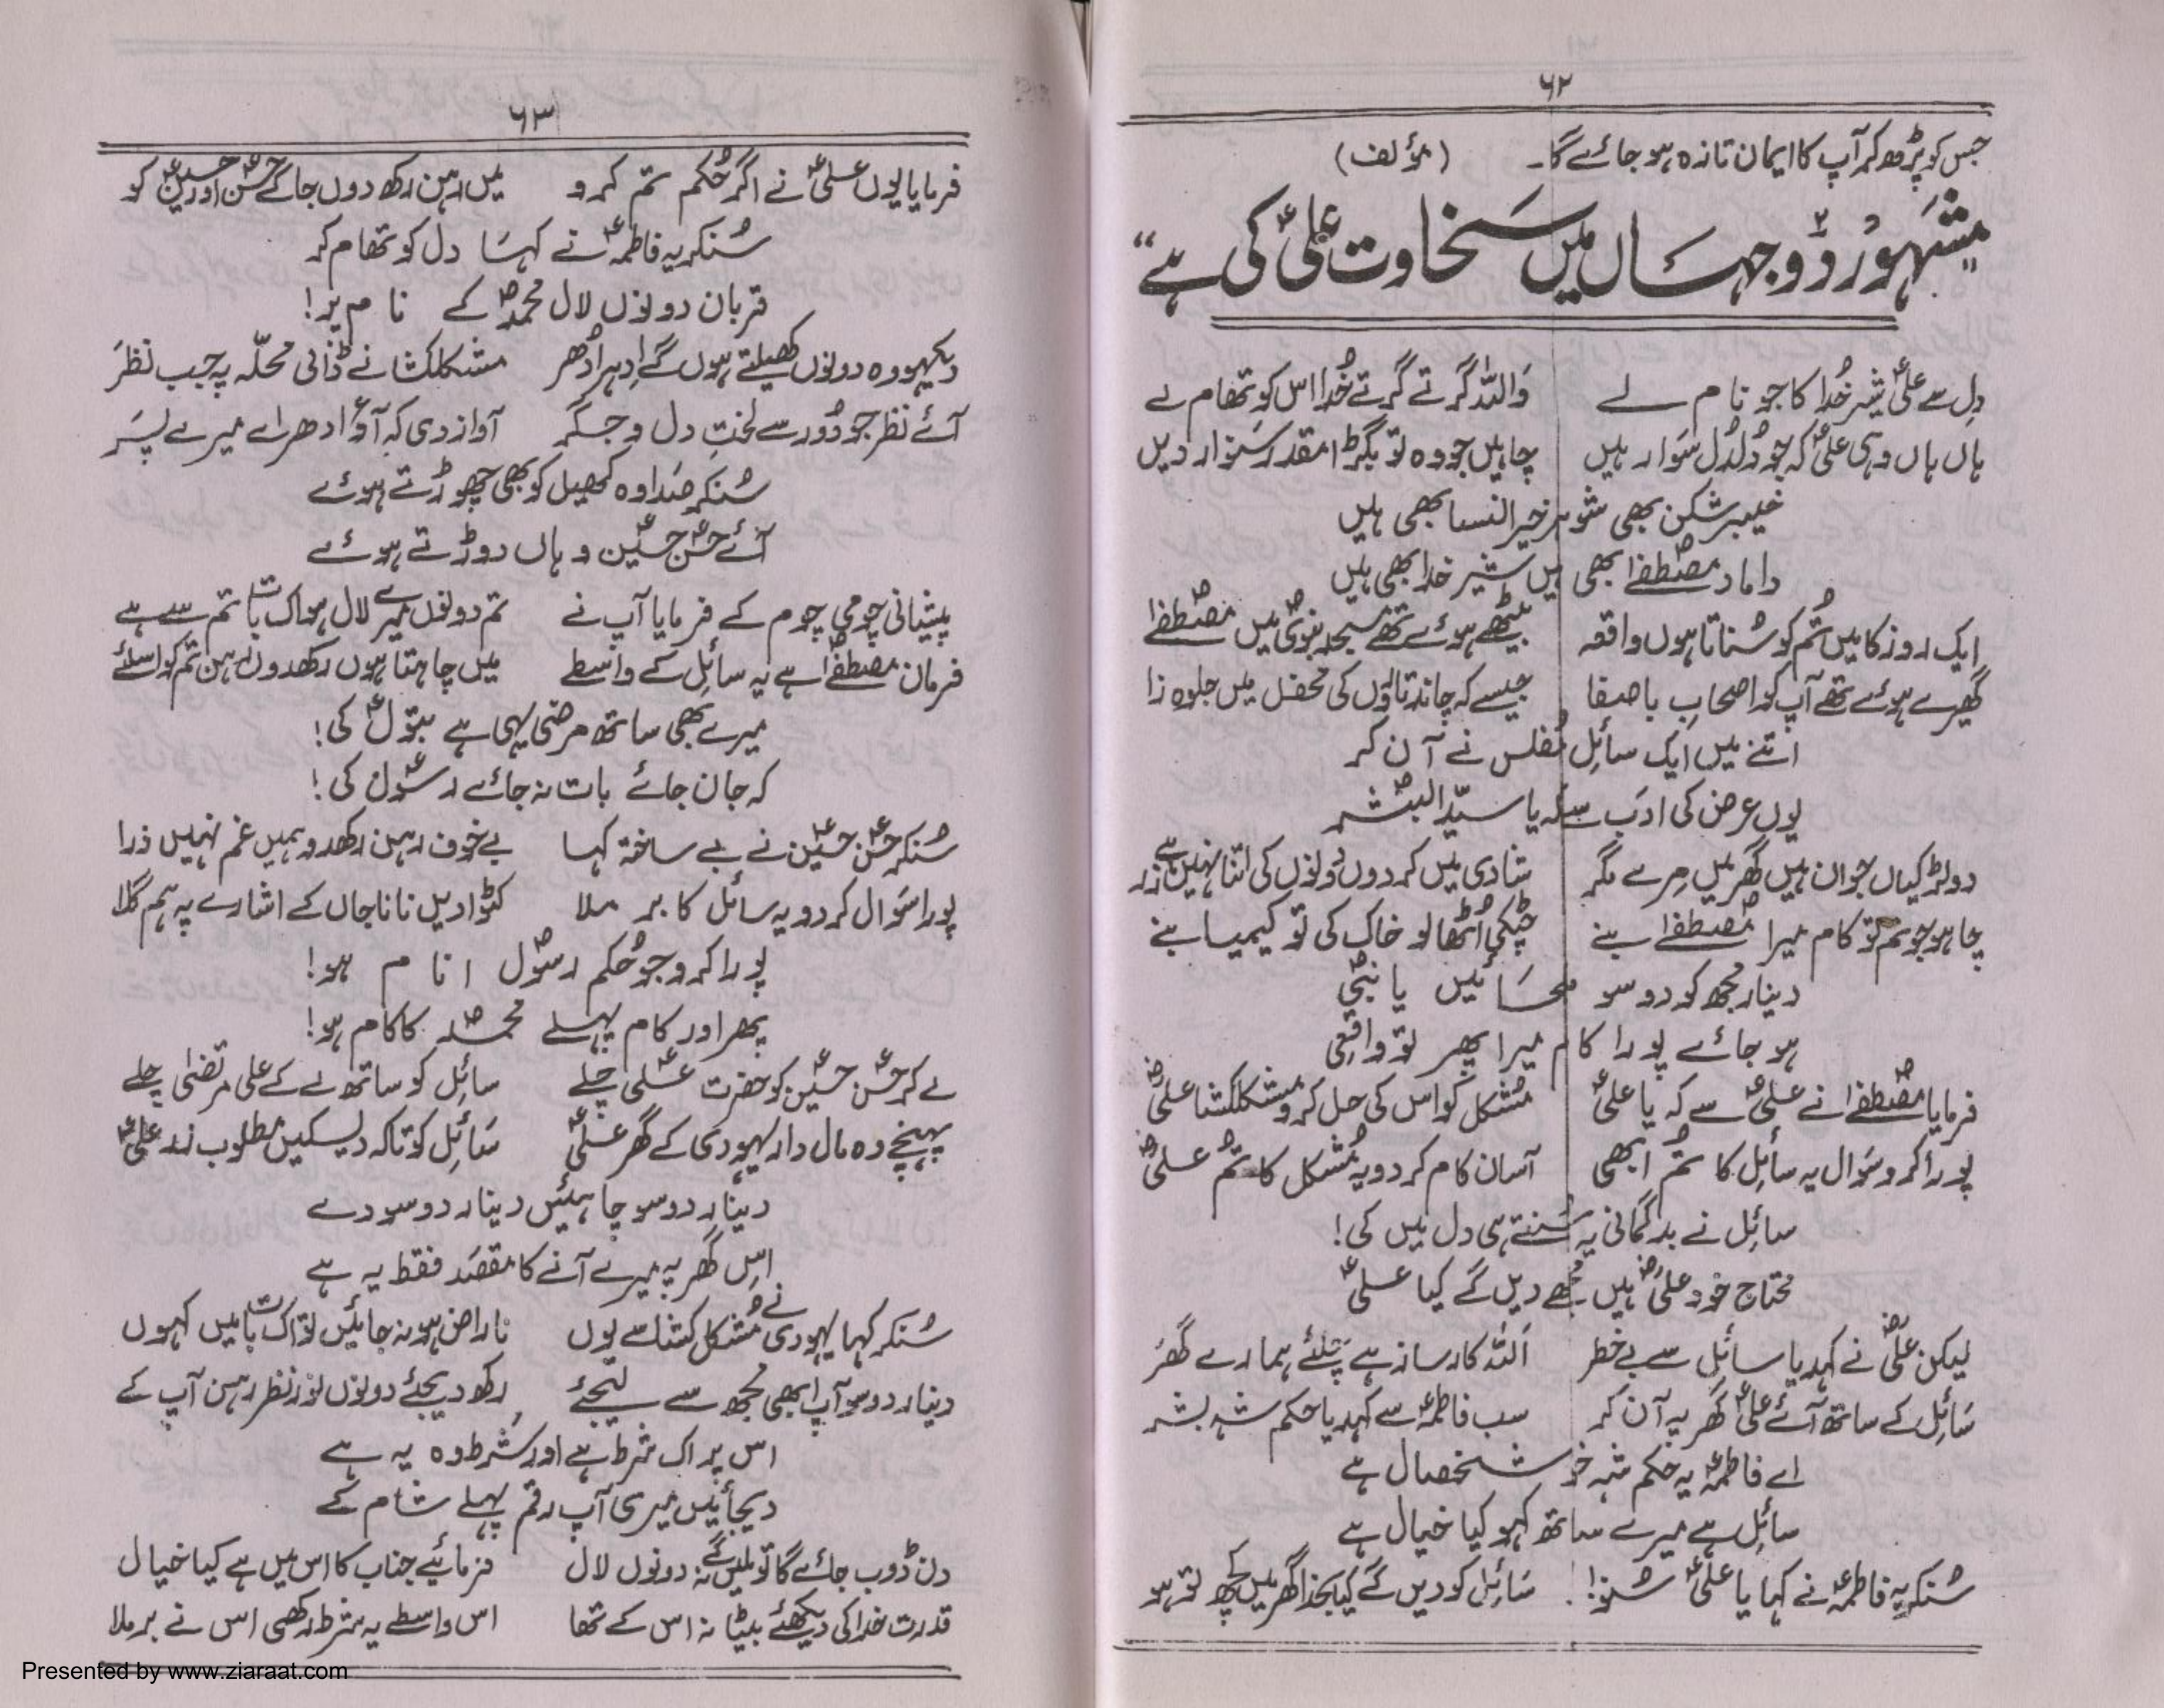 ۶۲
جس کو پڑھ کر آپ کا ایمان تازہ ہو جائے گا۔ (مؤلف)
"مشہور دو جہاں میں سخاوت علیؑ کی ہے"
دل سے علیؑ شیر خُدا کا جو نام لے واللہ گرتے گرتے خُدا اس کو تھام لے
ہاں ہاں وہی علیؑ کہ جو دُلدُل سَوار ہیں چاہیں جو وہ تو بگڑا مقدر سَنوار دیں
خیبر شکن بھی شوہر خیر النسا بھی ہیں
داماد مصطفےٰؐ بھی ہیں شیر خدا بھی ہیں
ایک روز کا میں تُم کو سُناتا ہوں واقعہ بیٹھے ہوئے تھے مسجد نبویؐ میں مصطفےٰؐ
گھیرے ہوئے تھے آپ کو اصحابِ باصفا جیسے کہ چاند تاروں کی محفل میں جلوہ زا
اتنے میں ایک سائل مُفلس نے آن کر
یوں عرض کی ادَب سے کہ یا سیّد البشرؐ
دو لڑکیاں جوان ہیں گھر میں مرے مگر شادی میں کردوں دونوں کی اتنا نہیں ہے زر
چاہو جو تم تو کام میرا مُصطفےٰؐ بنے چٹکی اُٹھا لو خاک کی تو کیمیا بنے
دینار مجھ کو دو سو مل جائیں یا نبیؐ
ہو جائے پورا کام میرا پھر تو واقعی
فرمایا مُصطفےٰؐ نے علیؑ سے کہ یا علیؑ مُشکل کو اس کی حل کرو مشکلکشا علیؓ
پورا کرو سَوال یہ سائل کا تُم ابھی آسان کام کردو یہ مُشکل کا تُم علیؓ
سائل نے بدگمانی یہ سُنتے ہی دل میں کی!
محتاج خود علیؓ ہیں مجھے دیں گے کیا علیؑ
لیکن علیؓ نے کہدیا سائل سے بے خطر اَللہ کارساز ہے چَلئے ہمارے گھر
سَائل کے ساتھ آئے علیؑ گھر پہ آن کر سب فاطمہؑ سے کہدیا حکم شہ بشر
اے فاطمہؑ یہ حکم شہ خوش خصال ہے
سائل ہے میرے ساتھ کہو کیا خیال ہے
سُنکر یہ فاطمہؑ نے کہا یا علیؑ سُنو! سَائل کو دیں گے کیا بخدا گھر میں کچھ تو ہو
۶۳
فرمایا یوں علیؑ نے اگر حُکم تم کرو میں رہن رکھ دوں جا کے حسنؑ اور حسینؑ کو
سُنکر یہ فاطمہؑ نے کہا دل کو تھام کر
قربان دونوں لال محمدؐ کے نام پر!
دیکھو وہ دونوں کھیلتے ہوں گے اِدہر اُدھر مشکلکشا نے ڈالی محلّہ پہ جب نظر
آئے نظر جو دُور سے لختِ دل و جگر آواز دی کہ آؤ ادھر اے میرے پسَر
سُنکر صَدا وہ کھیل کو بھی چھوڑتے ہوئے
آئے حسنؑ حسینؑ وہاں دوڑتے ہوئے
پیشانی چومی چوم کے فرمایا آپ نے تم دونوں میرے لال ہو اک بات تم سے ہے
فرمان مصطفےٰؐ ہے یہ سائل کے واسطے میں چاہتا ہوں رکھدوں رہن تم کو اسلئے
میرے بھی ساتھ مرضی یہی ہے بتولؑ کی!
کہ جان جائے بات نہ جائے رسُول کی!
سُنکر حسنؑ حسینؑ نے بے ساختہ کہا بے خوف رہن رکھدو ہمیں غم نہیں ذرا
پورا سَوال کردو یہ سائل کا بر ملا کٹوا دیں نانا جاں کے اشارے پہ ہم گلا
پورا کرو جو حُکم رسُولؐ انام ہو!
پھر اور کام پہلے محمدؐ کا کام ہو!
لے کر حسنؑ حسینؑ کو حضرت علیؑ چلے سائل کو ساتھ لے کے علی مرتضیٰ چلے
پہنچے وہ مال دار یہودی کے گھر علیؑ سَائل کو تاکہ دیسکیں مطلوب زر علیؑ
دینار دو سو چاہئیں دینار دو سو دے
اس گھر پہ میرے آنے کا مقصَد فقط یہ ہے
سُنکر کہا یہودی نے مُشکل کشا سے یوں ناراض ہو نہ جائیں تو اک بات میں کہوں
دینار دو سو آپ ابھی مجھ سے لیجئے رکھ دیجئے دونوں نورِ نظر رہن آپ کے
اس پر اک شرط ہے اور شرط وہ یہ ہے
دیجائیں میری آپ رقم پہلے شام کے
دن ڈوب جائے گا تو ملیں گے نہ دونوں لال فرمائیے جناب کا اس میں ہے کیا خیال
قدرت خدا کی دیکھئے بیٹا نہ اس کے تھا اس واسطے یہ شرط رکھی اس نے برملا
Presented by www.ziaraat.com